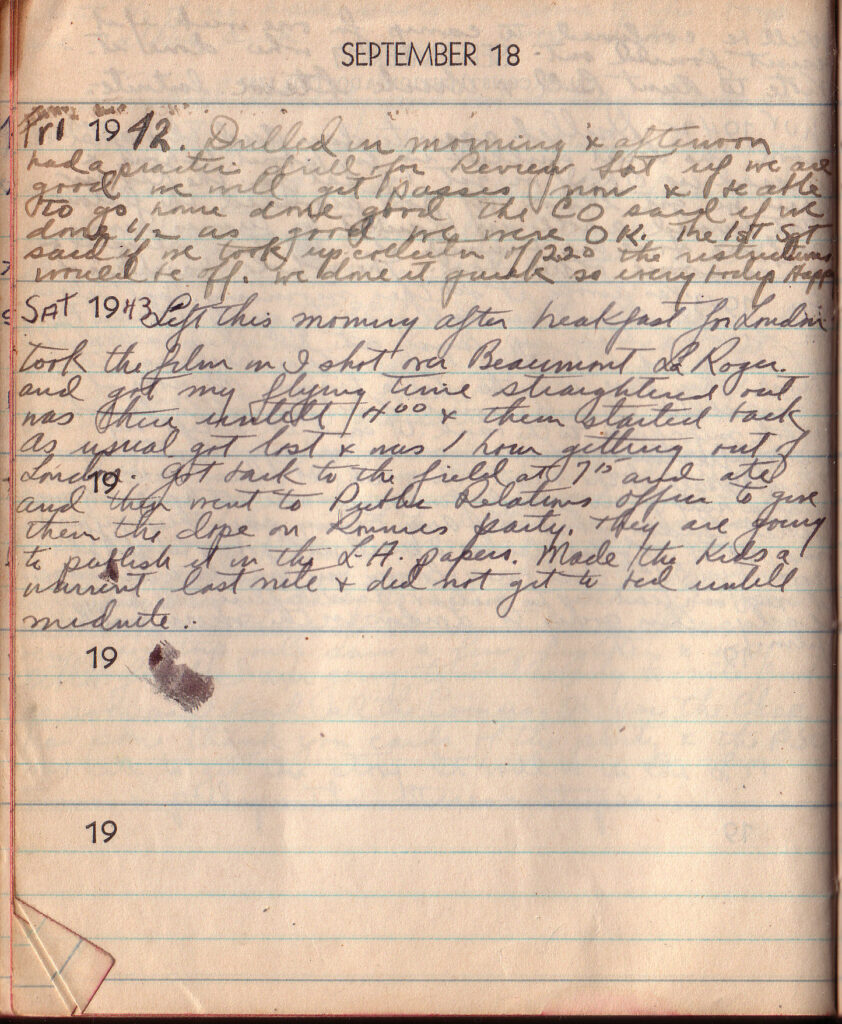 SEPTEMBER 18
Fri 1942. Drilled in morning & afternoon
had a practice drill for Review Sat if we are
good we will get passes now & be able
to go home done good the CO said if we
done 1/2 as good we were OK. The 1st Sgt
said if we took up collection of 220 the restrictions
would be off. we done it quick so every body Happ
Sat 1943 Left this morning after breakfast for London
took the film in I shot over Beaumont Le Roger.
and got my flying time straightened out
was there untill 1400 & them started back
As usual got lost & was 1 hour gitting out of
London. Got back to the field at 715 and ate
19
and then went to Public Relations office to give
them the dope on Ronnies party. they are going
to publish it in the L.A. papers. Made the Kids a
last nite & did not get to bed untill
midnite.
19
19